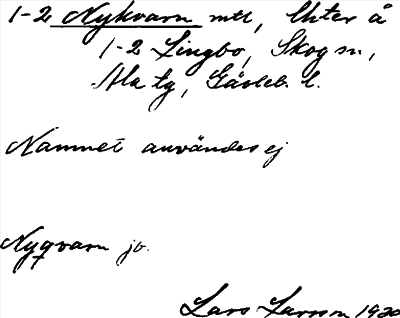 1-2 Nykvarn mtl, Uhter å
1-2 Lingbo, Skog sn,
Ala tg, Gävleb. l.
Namnet användes ej
Nyqvarn jb.
Lars Larsson 1920